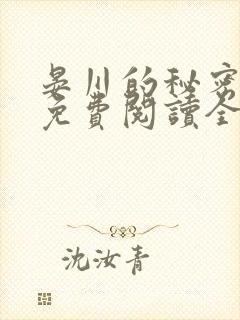 晏川的秘密
免費閱讀全
沈汝青